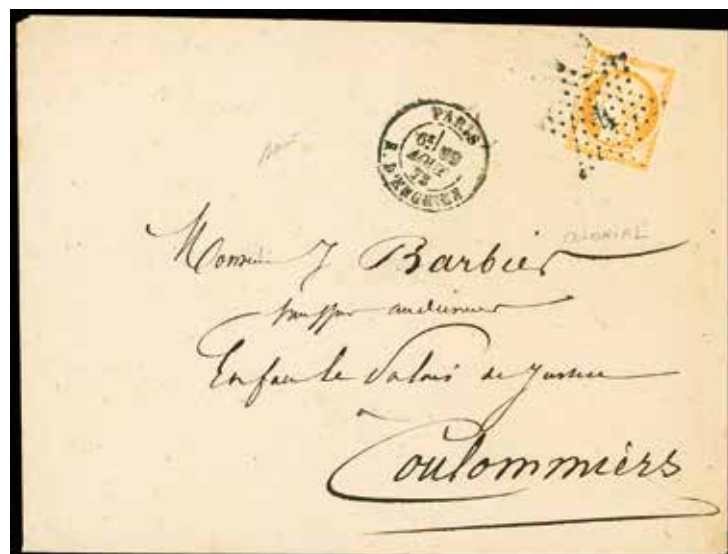 PARIS
6E 29
AOUT
72
R. D'ENGHIEN
4
COLONIAL
Monsieur J Barbier
huissier audiencier
En face le Palais de Justice
à
Coulommiers